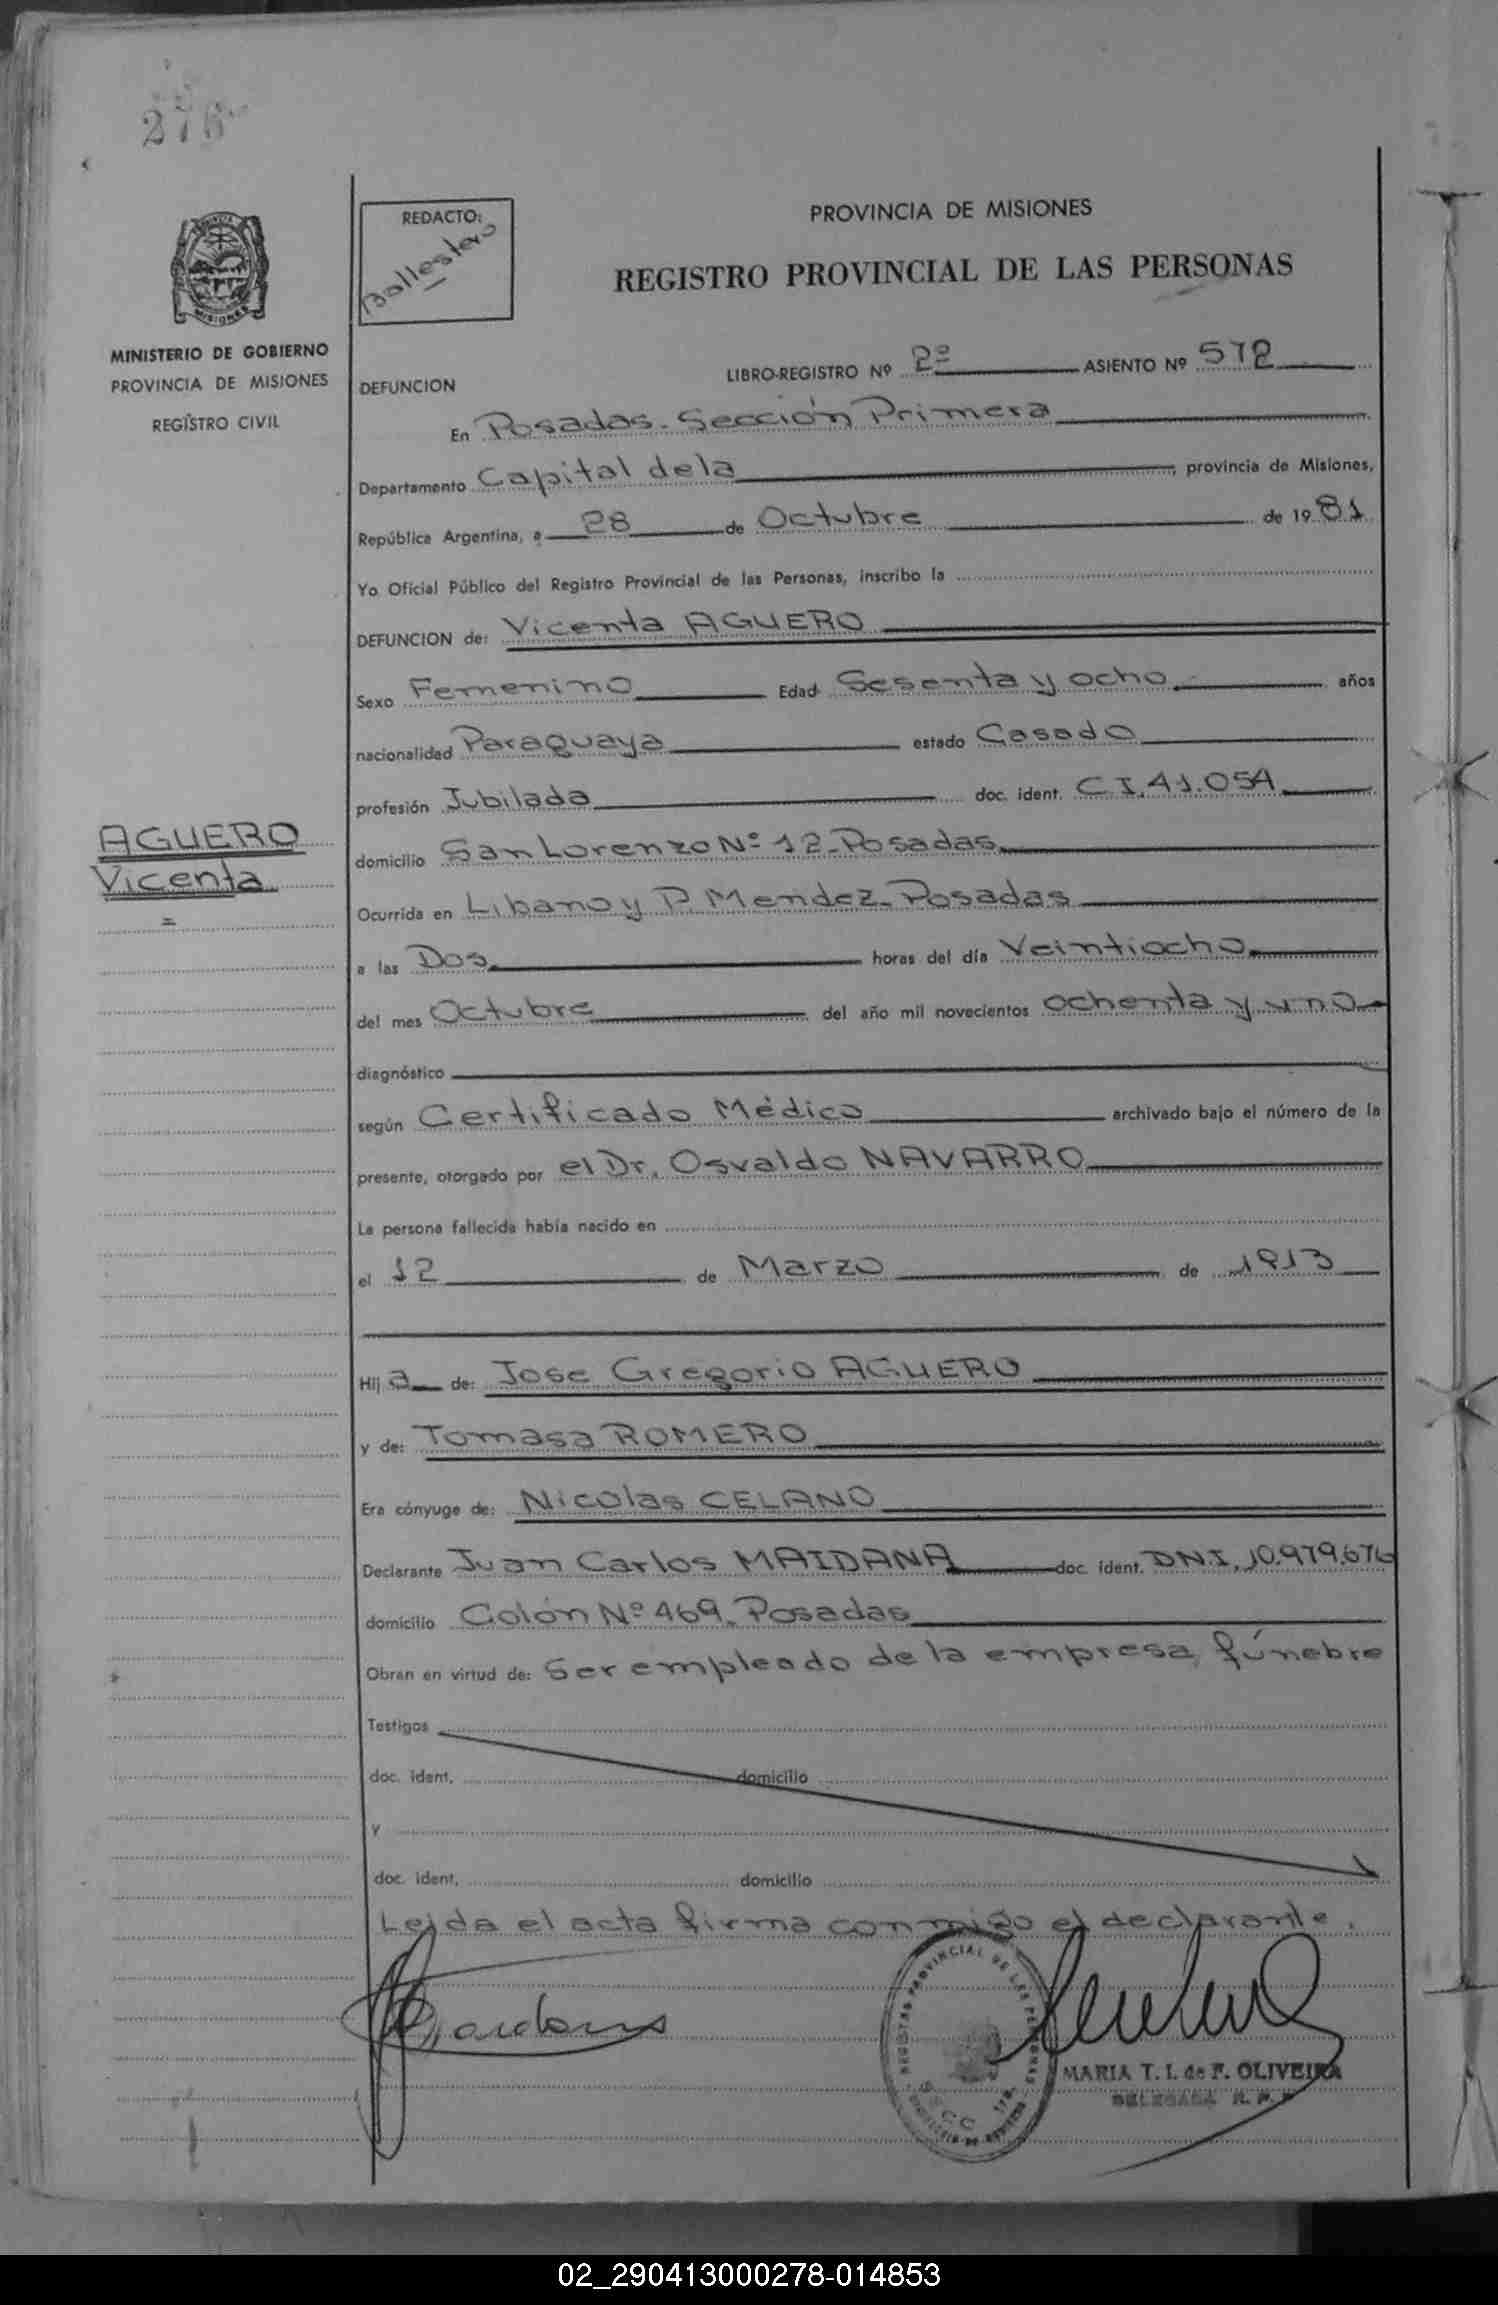 276
REDACTO:
Ballestero
PROVINCIA DE MISIONES
REGISTRO PROVINCIAL DE LAS PERSONAS
MINISTERIO DE GOBIERNO
PROVINCIA DE MISIONES
REGISTRO CIVIL
LIBRO-REGISTRO Nº 2º ASIENTO Nº 572
DEFUNCION
En Posadas. Sección Primera
Departamento Capital de la provincia de Misiones,
República Argentina, a 28 de Octubre de 1981
Yo Oficial Público del Registro Provincial de las Personas, inscribo la
DEFUNCION de: Vicenta AGUERO
Sexo Femenino Edad Sesenta y ocho años
nacionalidad Paraguaya estado Casado
profesión Jubilada doc. ident. C.I. 41.054
AGUERO
Vicenta
domicilio San Lorenzo Nº 12-Posadas
Ocurrida en Libano y P. Mendez-Posadas
a las Dos horas del día Veintiocho
del mes Octubre del año mil novecientos ochenta y uno
diagnóstico
según Certificado Médico archivado bajo el número de la
presente, otorgado por el Dr. Osvaldo NAVARRO
La persona fallecida había nacido en
el 12 de Marzo de 1913
Hij a de: Jose Gregorio AGUERO
y de: Tomasa ROMERO
Era cónyuge de: Nicolas CELANO
Declarante Juan Carlos MAIDANA doc. ident. D.N.I. 10.979.676
domicilio Colón Nº 469. Posadas
Obran en virtud de: Ser empleado de la empresa fúnebre
Testigos
doc. ident. domicilio
y
doc. ident. domicilio
Leida el acta firma conmigo el declarante.
MARIA T. I. de F. OLIVEIRA
DELEGADA R. P. P.
02_290413000278-014853